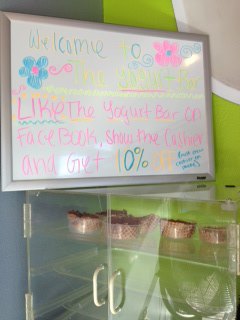 Welcome to
The Yogurt Bar
LIKE The Yogurt Bar On
FaceBook, Show the Cashier
and Get 10% off